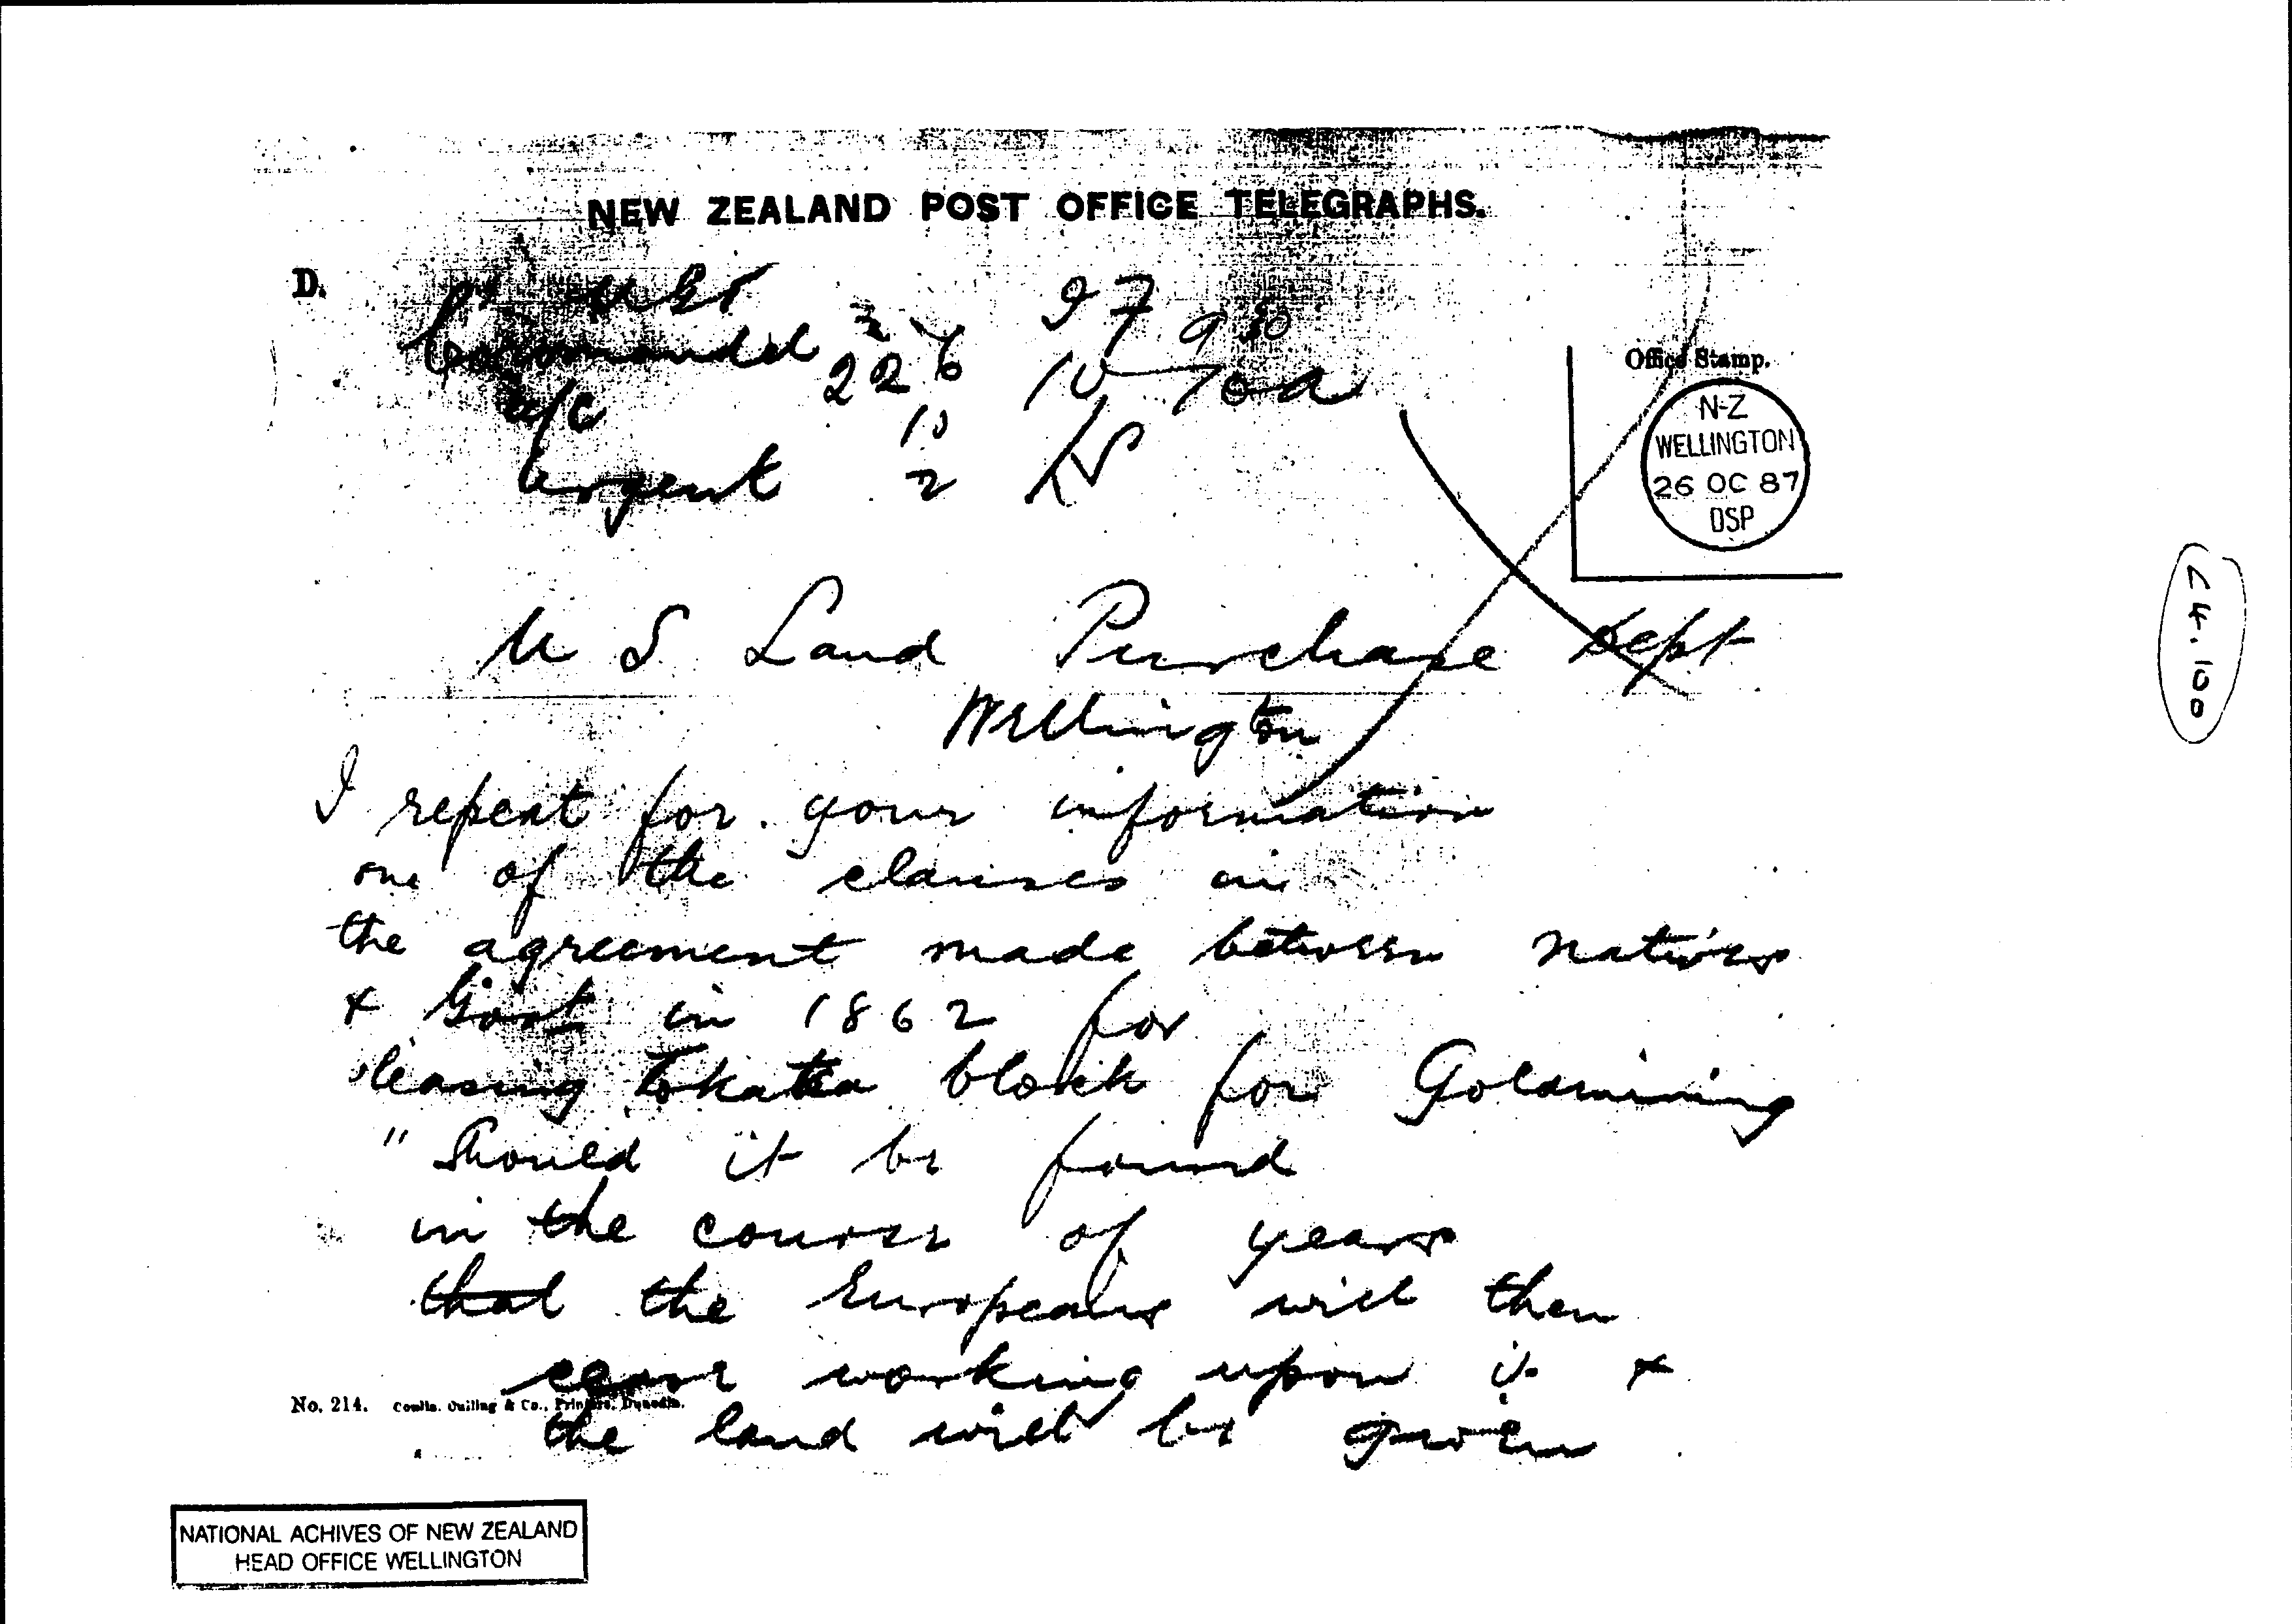 NEW ZEALAND POST OFFICE TELEGRAPHS.
D.
Coromandel 226 10 10 a
97 9 30
a/c 10
Urgent 2
Office Stamp.
N-Z
WELLINGTON
26 OC 87
DSP
U S Land Purchase Dept
Wellington
I repeat for your information
one of the clauses in
the agreement made between natives
& Govt in 1862 for
leasing Tokatea block for Goldmining
" Should it be found
in the course of years
that the Europeans will then
cease working upon it &
the land will be given
No. 214. Coulls. Culling & Co., Printers, Dunedin.
NATIONAL ACHIVES OF NEW ZEALAND
HEAD OFFICE WELLINGTON
C4.100